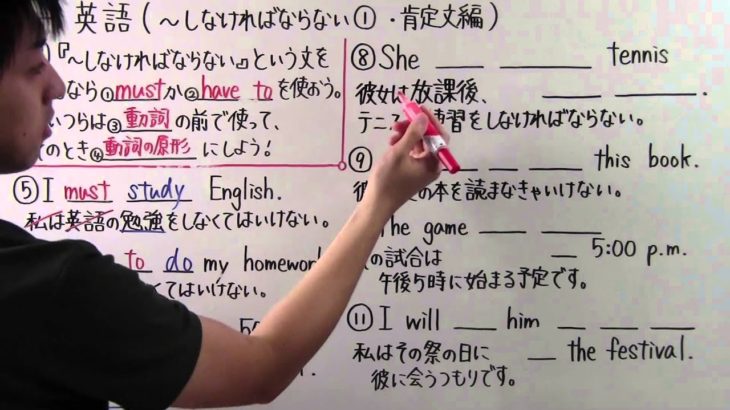 英語 (〜しなければならない① ・肯定文編)
『〜しなければならない』という文を
なら①must か ②have to を使おう。
いつらは③動詞 の前で使って、
のとき④動詞の原形 にしよう!
⑤ I must study English.
私は英語の勉強をしなくてはいけない。
to do my homework
てはいけない。
⑧ She ___ ___ tennis
___ ___.
彼女は放課後、
テニス 練習をしなければならない。
⑨ ___ ___ this book.
の本を読まなきゃいけない。
The game ___ ___
___ 5:00 p.m.
の試合は
午後5時に始まる予定です。
⑪ I will ___ him ___ ___ ___
___ the festival.
私はその祭の日に
彼に会うつもりです。